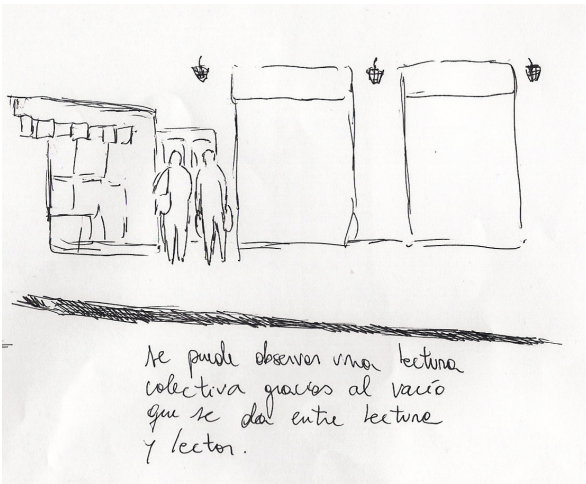 se puede observar una lectura
colectiva gracias al vacío
que se da entre lectura
y lector.